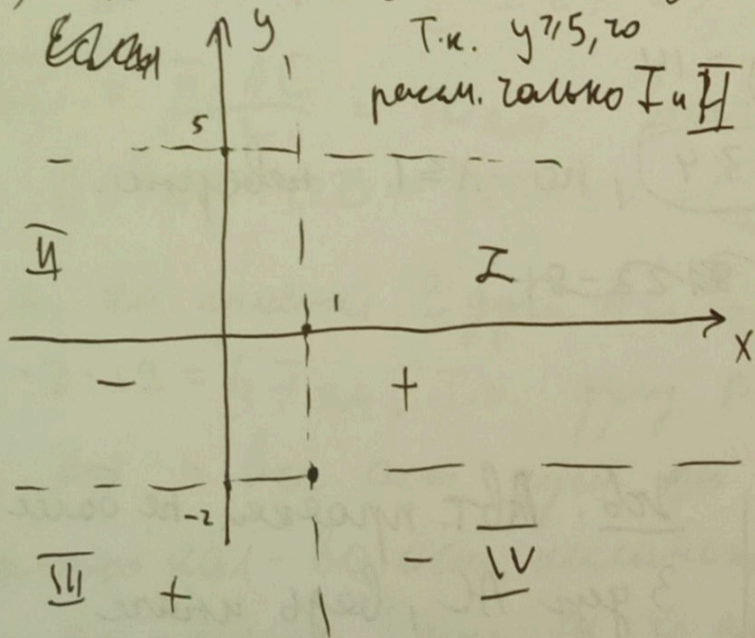 y
Т.к. y⩾5, то
рассм. только I и II
5
II
I
1
X
−
+
-2
III
+
−
IV